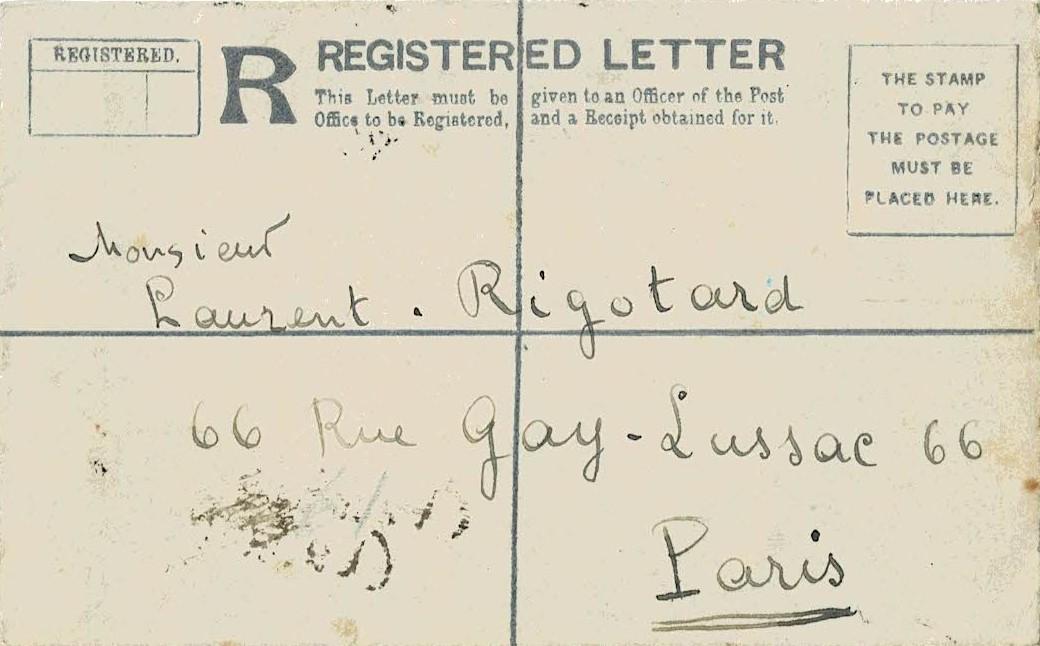 REGISTERED.
R
REGISTERED LETTER
This Letter must be given to an Officer of the Post
Office to be Registered, and a Receipt obtained for it.
THE STAMP
TO PAY
THE POSTAGE
MUST BE
PLACED HERE.
Monsieur
Laurent . Rigotard
66 Rue Gay-Lussac 66
Paris